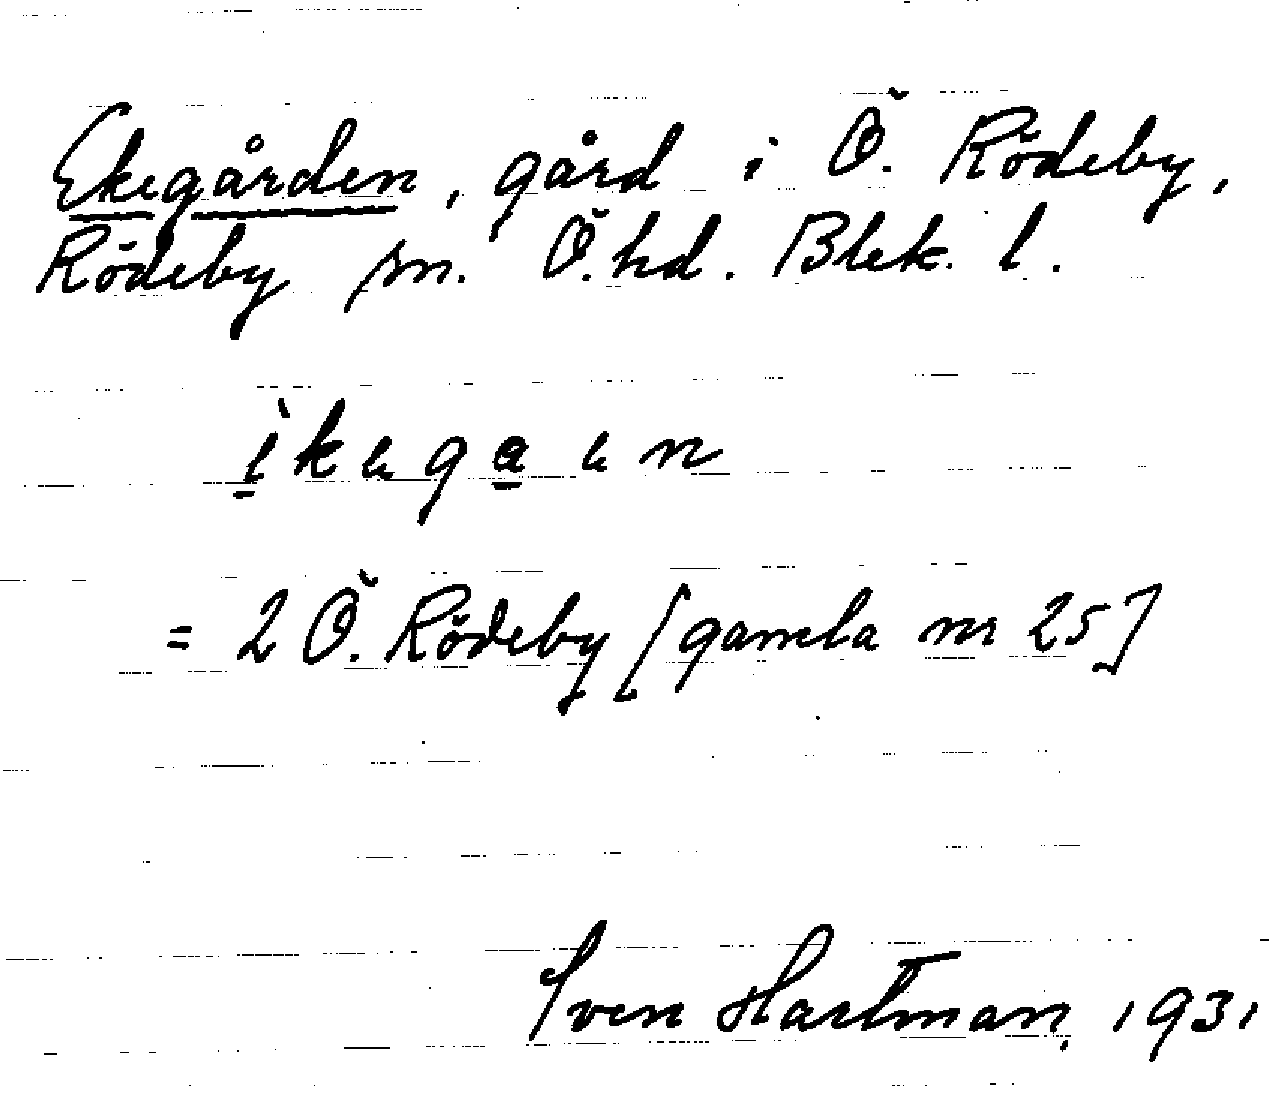 Ekegården, gård i Ö. Rödeby,
Rödeby sn. Ö. hd. Blek. l.
= 2 Ö. Rödeby [gamla nr 25]
Sven Hartman, 1931